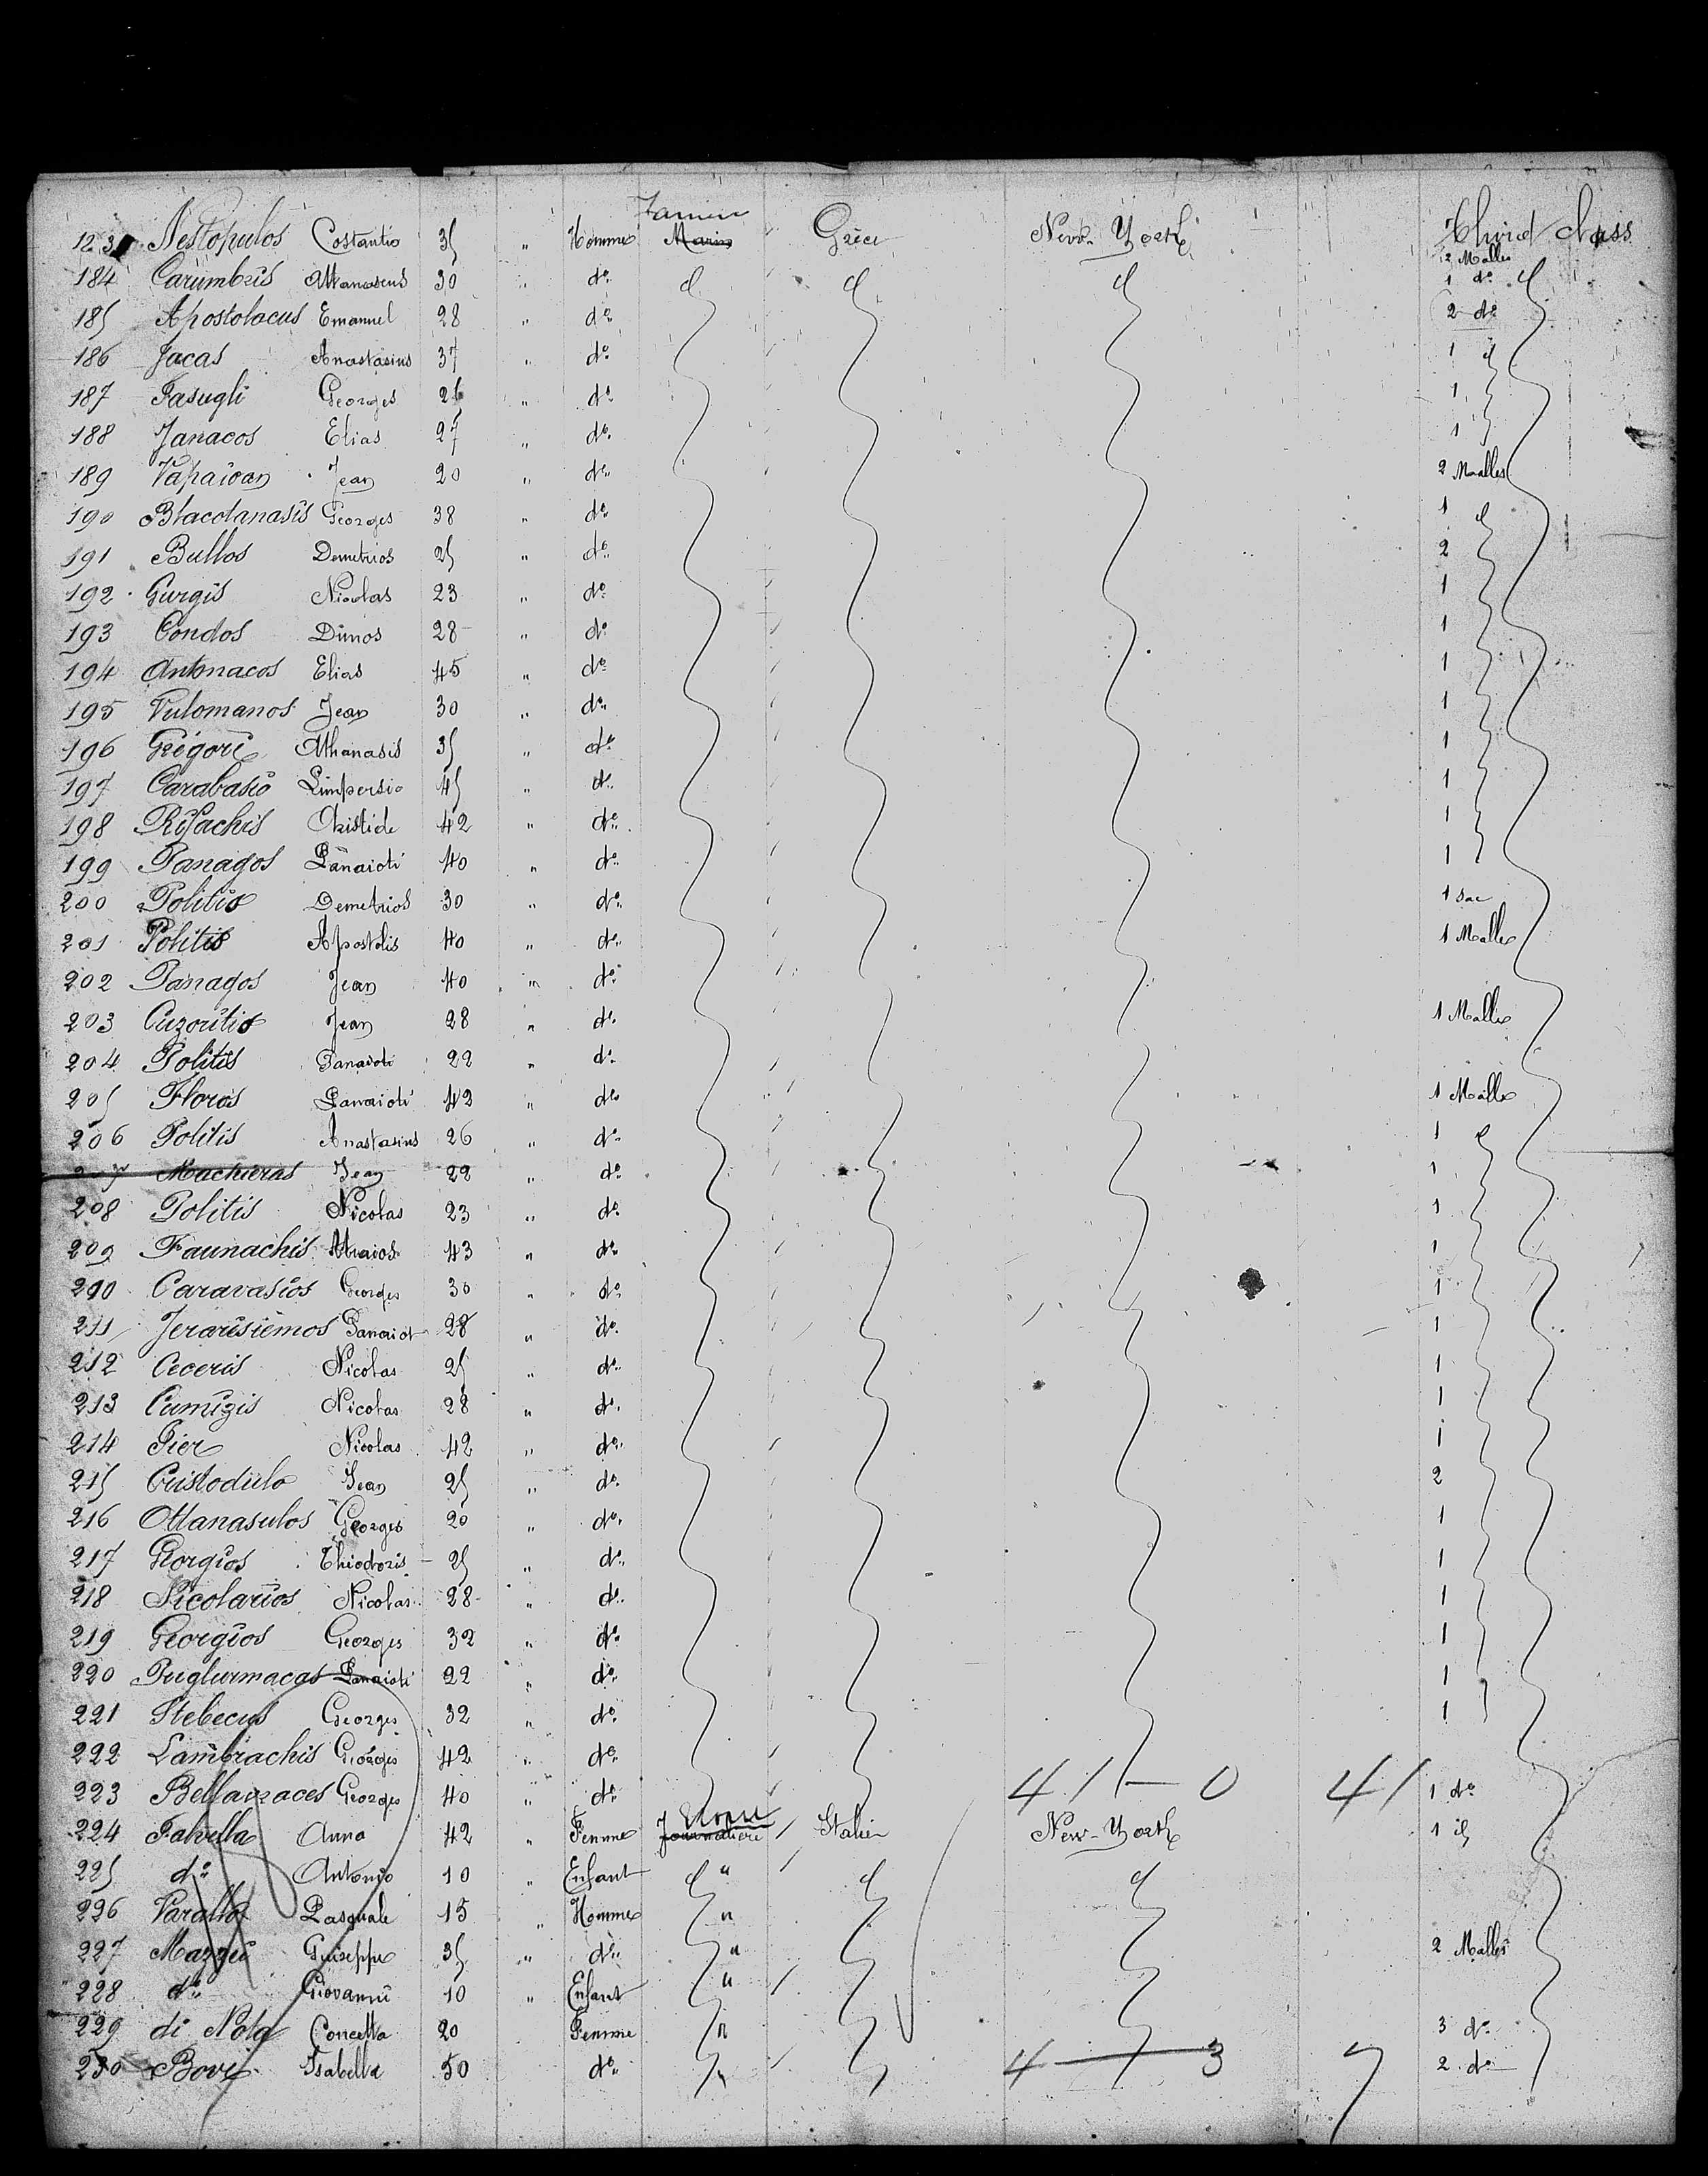 Farmer
123 Nestopulos Costantio 35 " Homme Marin Grèce New-York Third Class
2 Malles
184 Carumbris Attanasius 30 " do 1 do
185 Apostolacus Emanuel 28 " do 2 do
186 Jacas Anastasius 37 " do 1
187 Fasugli Georges 26 " do 1
188 Janacos Elias 27 " do 1
189 Vapaioan Jean 20 " do 2 Malles
190 Blacotanasis Georges 38 " do 1
191 Bullos Demetrios 25 " do 2
192 Gurgis Nicolas 23 " do 1
193 Condos Dimos 28 " do 1
194 Antonacos Elias 45 " do 1
195 Vulomanos Jean 30 " do 1
196 Grégori Athanasis 35 " do 1
197 Carabasio Limpersio 45 " do 1
198 Rifachis Aristide 42 " do 1
199 Panagos Panaioti 40 " do 1
200 Politis Demetrios 30 " do 1 sac
201 Politis Apostolis 40 " do 1 Malle
202 Panagos Jean 40 " do
203 Cuzoritis Jean 28 " do 1 Malle
204 Politis Panaioti 22 " do
205 Floros Panaioti 42 " do 1 Malle
206 Politis Anastasius 26 " do 1
207 Machieras Jean 22 " do 1
208 Politis Nicolas 23 " do 1
209 Faunachis 43 " do 1
210 Caravasios Georges 30 " do 1
211 Jerarisiemos Panaiot 28 " do 1
212 Ceceris Nicolas 25 " do 1
213 Cumizis Nicolas 28 " do 1
214 Pier Nicolas 42 " do 1
215 Cristodulo Jean 25 " do 2
216 Attanasulos Georges 20 " do 1
217 Georgios Thiodoris 25 " do 1
218 Nicolarios Nicolas 28 " do 1
219 Georgios Georges 32 " do 1
220 Puglurmacas Panaioti 22 " do 1
221 Stebecus Georges 32 " do 1
222 Lambrachis Georges 42 " do
223 Bellamaces Georges 40 " do 41 — 0 41 1 do
224 Falvella Anna 42 " Femme Journalière Italie New-York 1 id
225 do Antonio 10 " Enfant "
226 Varallo Pasquale 15 " Homme "
227 Mazzei Guiseppe 35 " do " 2 Malles
228 do Giovanni 10 " Enfant "
229 di Nola Concetta 20 Femme " 3 do
230 Bove Isabella 50 do " 4 — 3 7 2 do